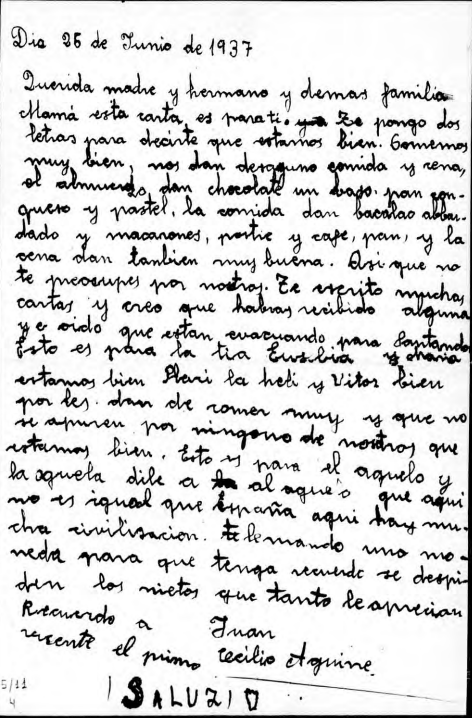 Dia 26 de Junio de 1937
Querida madre y hermano y demas familia
Mamá esta carta es para ti. Te pongo dos
letras para decirte que estamos bien. Comemos
muy bien, nos dan desayuno comida y cena,
el almuerzo, dan chocolate un baso. pan con-
queso y pastel, la comida dan bacalao abar-
dado y macarones, postre y cafe, pan, y la
cena dan tanbien muy buena. Asi que no
te preocupes por nostros. Te escrito muchas
cartas y creo que habras recibido alguna
y e oido que estan evacuando para Santander
Esto es para la tia Eusebia y Maria
estamos bien Mari la heli y Vitor bien
por les dan de comer muy y que no
se apuren por ninguno de nostros que
estamos bien. Esto es para el aguelo y
la aguela dile a al aguelo que aqui
no es igual que España aqui hay mu-
cha civilisacion. te le mando una mo-
neda para que tenga recuerdo se despi-
den los nietos que tanto le aprecian
Recuerdo a Juan
el primo Cecilio Aguirre.
5/11
4
¡SALUZIO